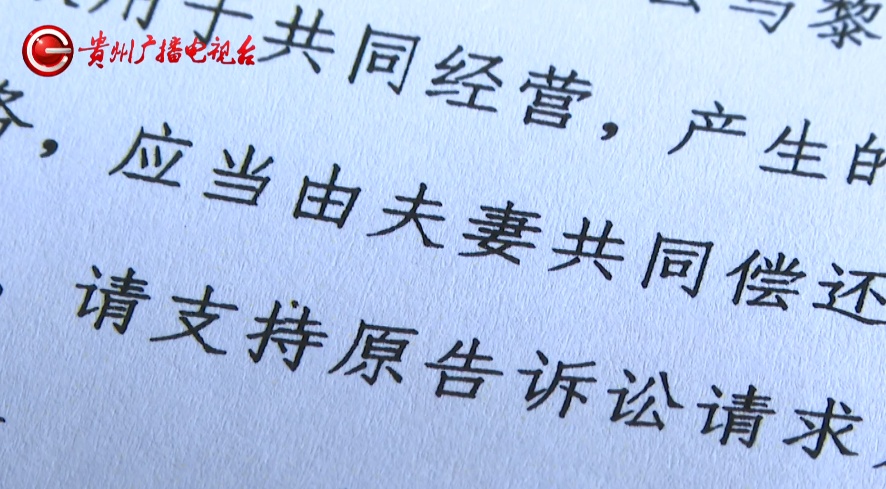 贵州广播电视台
与黎
用于共同经营，产生的
，应当由夫妻共同偿还
，请支持原告诉讼请求，